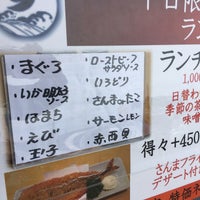 ・まぐろ
・いか明太ソース
・はまち
・えび
・玉子
・ローストビーフ
サラダソース
・いろどり
・さんまのたこ
・サーモンレモン
・赤西貝
ランチ
1,000
日替わ
季節の茶
味噌
得々+450
さんまフライ
デザート付